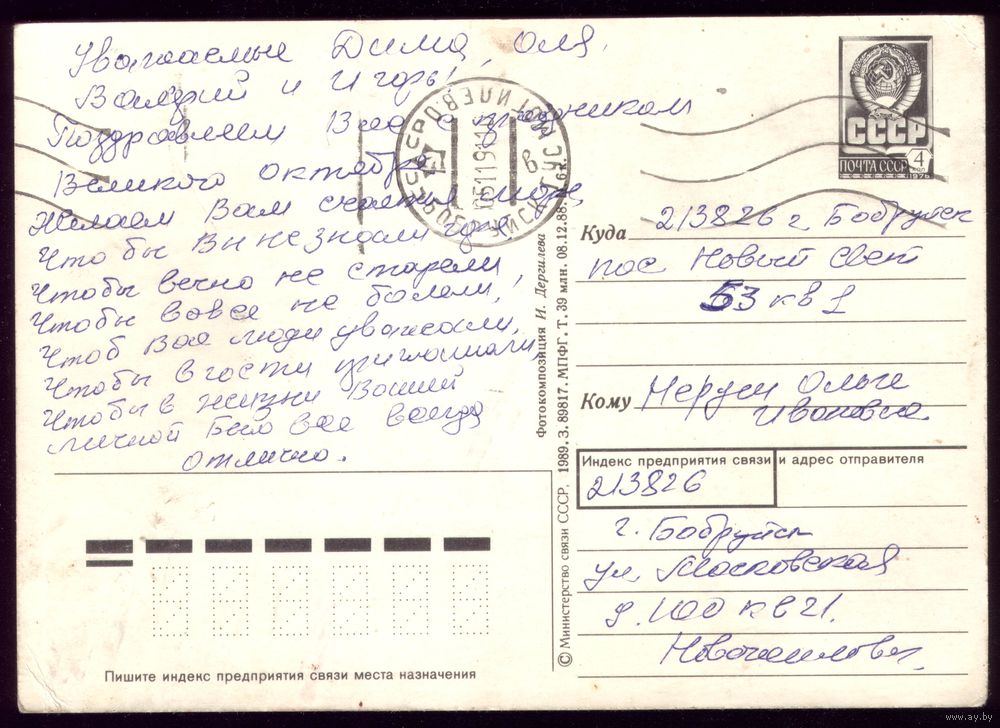 Уважаемые Дима, Оля,
Валерий и Игорь!
Поздравляем Вас с праздником
Великого октября
Желаем Вам счастья, мира,
Чтобы Вы не знали горя,
Чтобы вечно не старели,
Чтобы вовсе не болели,
Чтоб Вас люди уважали,
Чтобы в гости приглашали,
Чтобы в жизни Вашей
личной Было все всегда
отлично.
СССР
ПОЧТА СССР 4
Куда 213826 г. Бобруйск
пос Новый Свет
53 кв 1
Кому Ольге
Ивановне
Индекс предприятия связи и адрес отправителя
213826
г. Бобруйск
ул. Московская
д. 100 кв 21.
Пишите индекс предприятия связи места назначения
© Министерство связи СССР. 1989. З. 89817. МПФГ. Т. 39 млн. 08.12.88. Ц. 6 к.
Фотокомпозиция И. Дергилева
www.ay.by